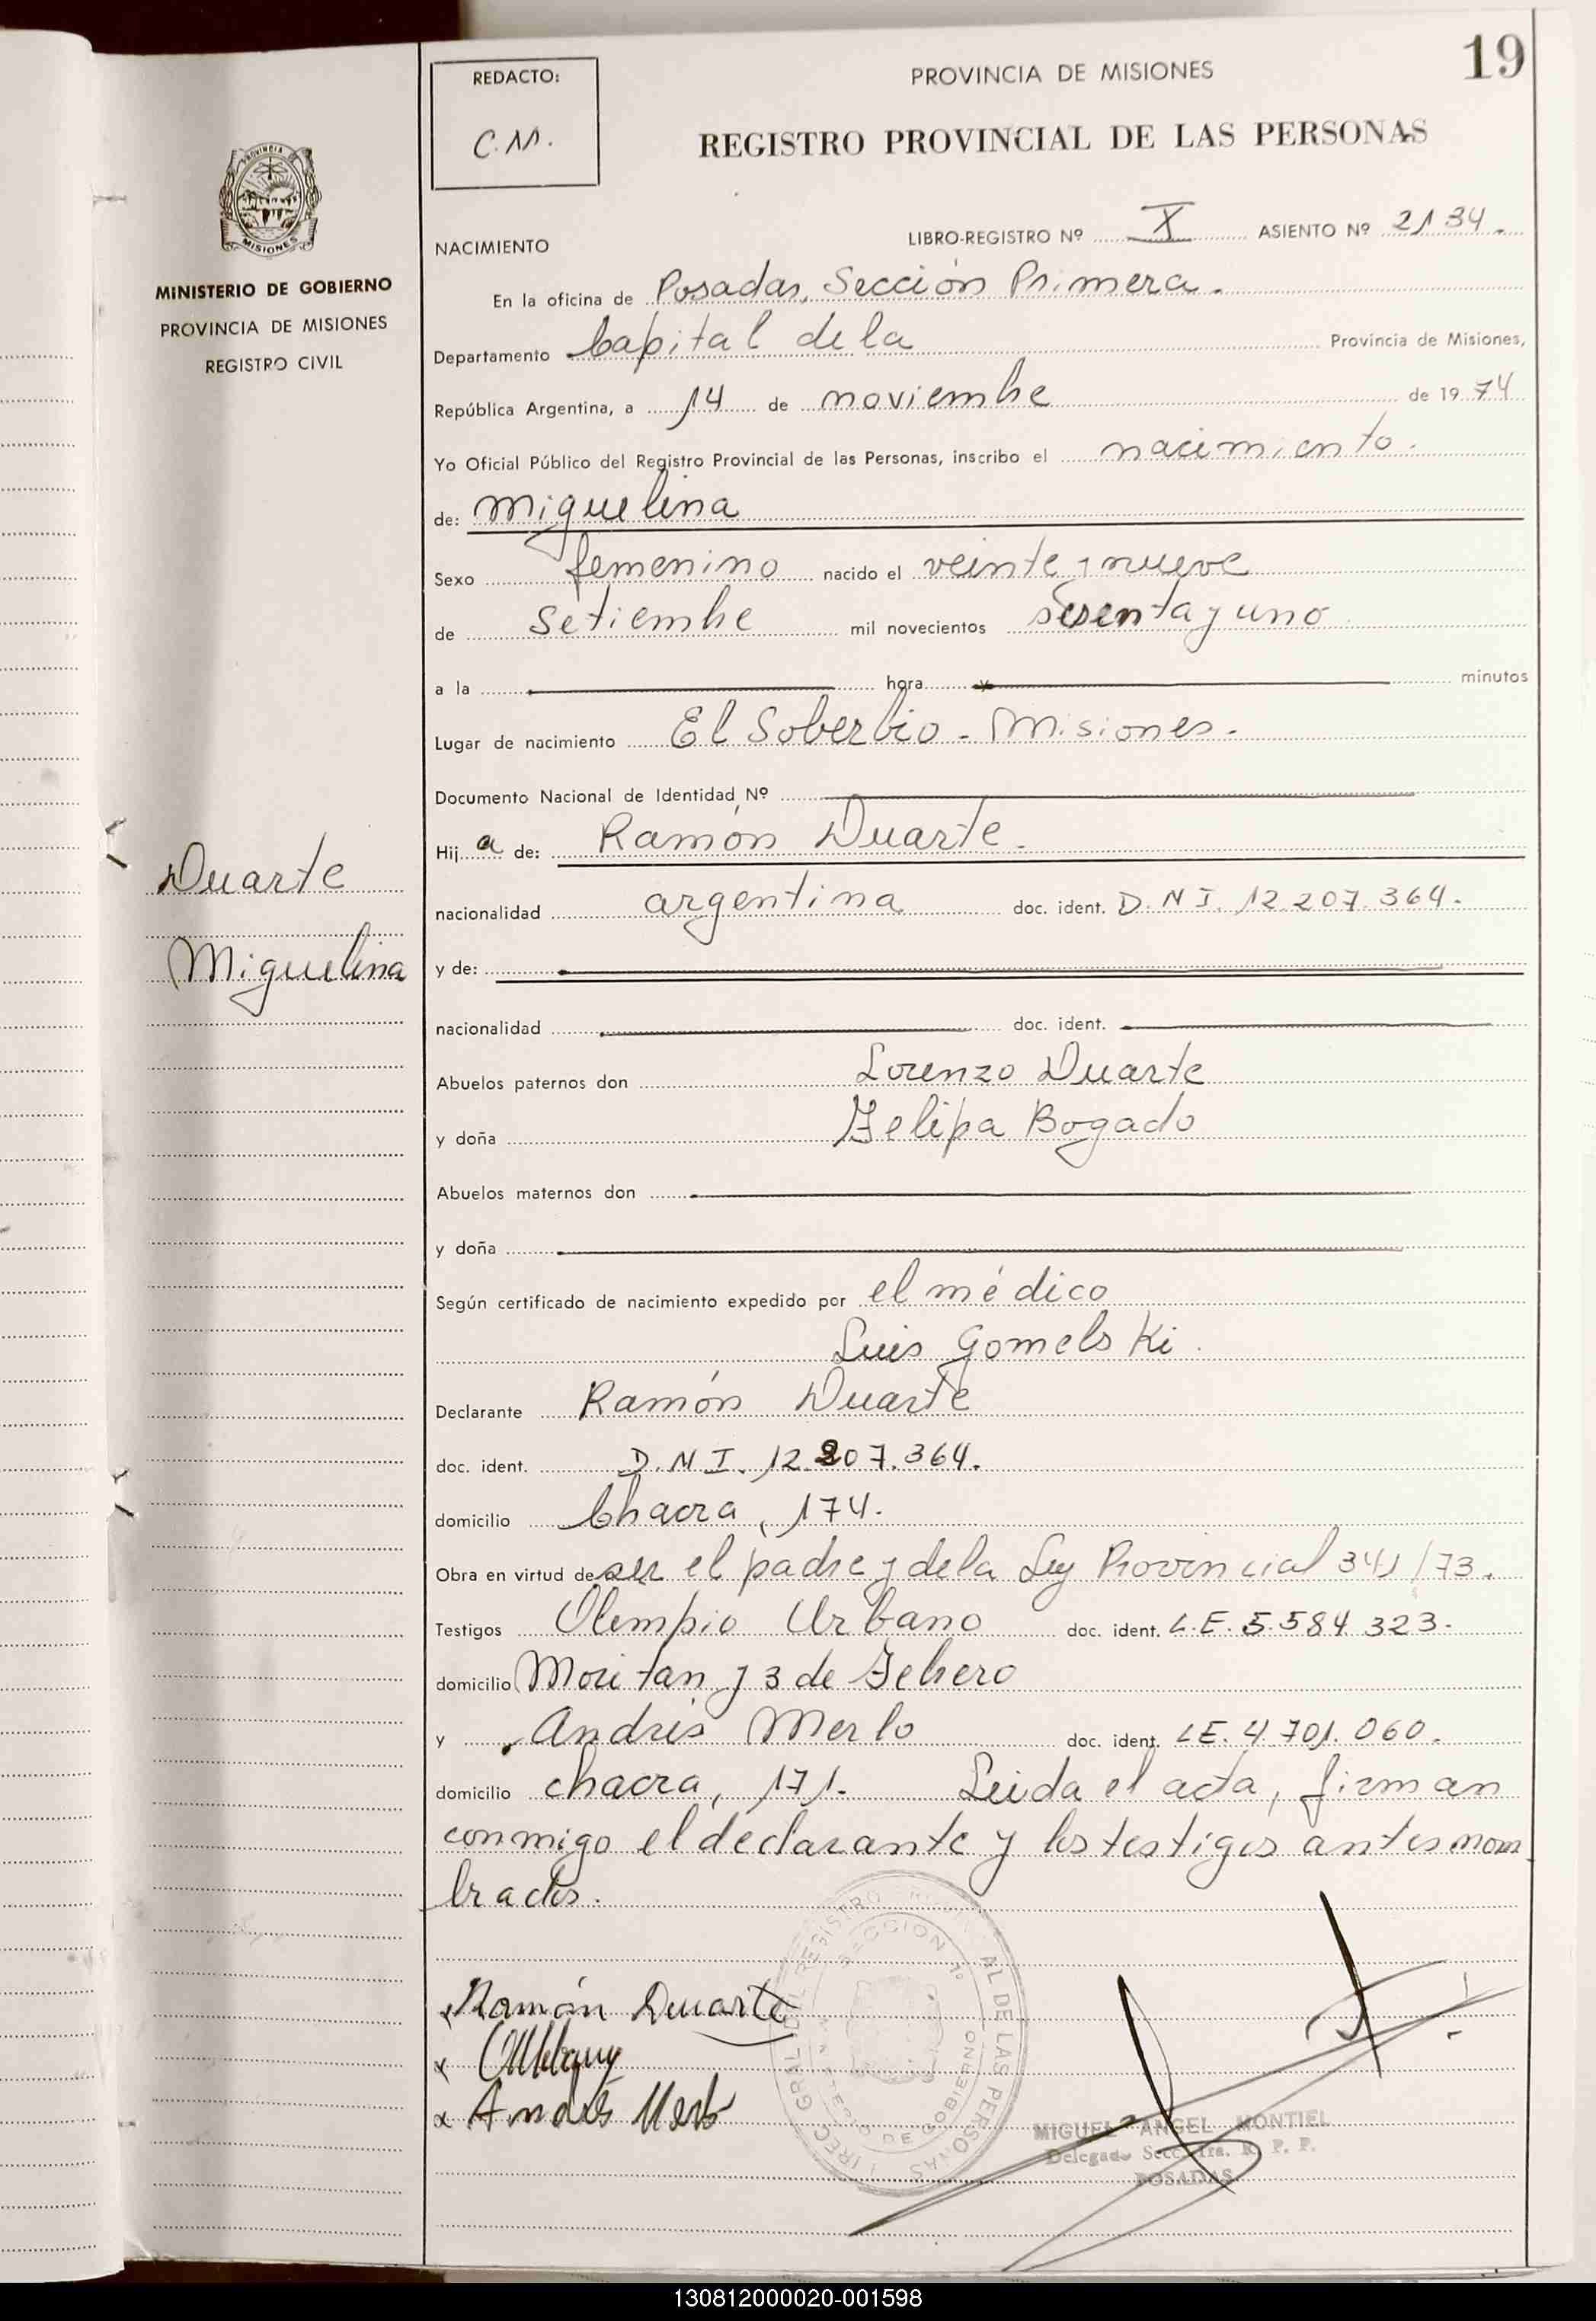 19
REDACTO:
C.M.
PROVINCIA DE MISIONES
REGISTRO PROVINCIAL DE LAS PERSONAS
PROVINCIA
MISIONES
MINISTERIO DE GOBIERNO
PROVINCIA DE MISIONES
REGISTRO CIVIL
NACIMIENTO LIBRO-REGISTRO Nº X ASIENTO Nº 2134.
En la oficina de Posadas, Sección Primera.
Departamento Capital de la Provincia de Misiones,
República Argentina, a 14 de noviembre de 1974
Yo Oficial Público del Registro Provincial de las Personas, inscribo el nacimiento.
de: Miguelina
Sexo femenino nacido el veinte y nueve
de Setiembre mil novecientos sesenta y uno
a la hora y minutos
Lugar de nacimiento El Soberbio - Misiones.
Documento Nacional de Identidad Nº
Hij a de: Ramón Duarte.
Duarte
Miguelina
nacionalidad argentina doc. ident. D.N.I. 12.207.364.
y de:
nacionalidad doc. ident.
Abuelos paternos don Lorenzo Duarte
y doña Felipa Bogado
Abuelos maternos don
y doña
Según certificado de nacimiento expedido por el médico
Luis Gomelski.
Declarante Ramón Duarte
doc. ident. D.N.I. 12.207.364.
domicilio Chacra, 174.
Obra en virtud de ser el padre y de la Ley Provincial 341/73.
Testigos Olimpio Urbano doc. ident. L.E. 5.584.323.
domicilio Moritan y 3 de Febrero
y Andrés Merlo doc. ident. LE. 4.701.060.
domicilio chacra, 171. Leida el acta, firman
conmigo el declarante y los testigos antes nom
brados.
x Ramón Duarte
x
x Andrés Merlo
SECCION 1º
AL DE LAS PERSONAS
MIGUEL ANGEL MONTIEL
Delegado Secc. 1ra. R. P. P.
POSADAS
130812000020-001598